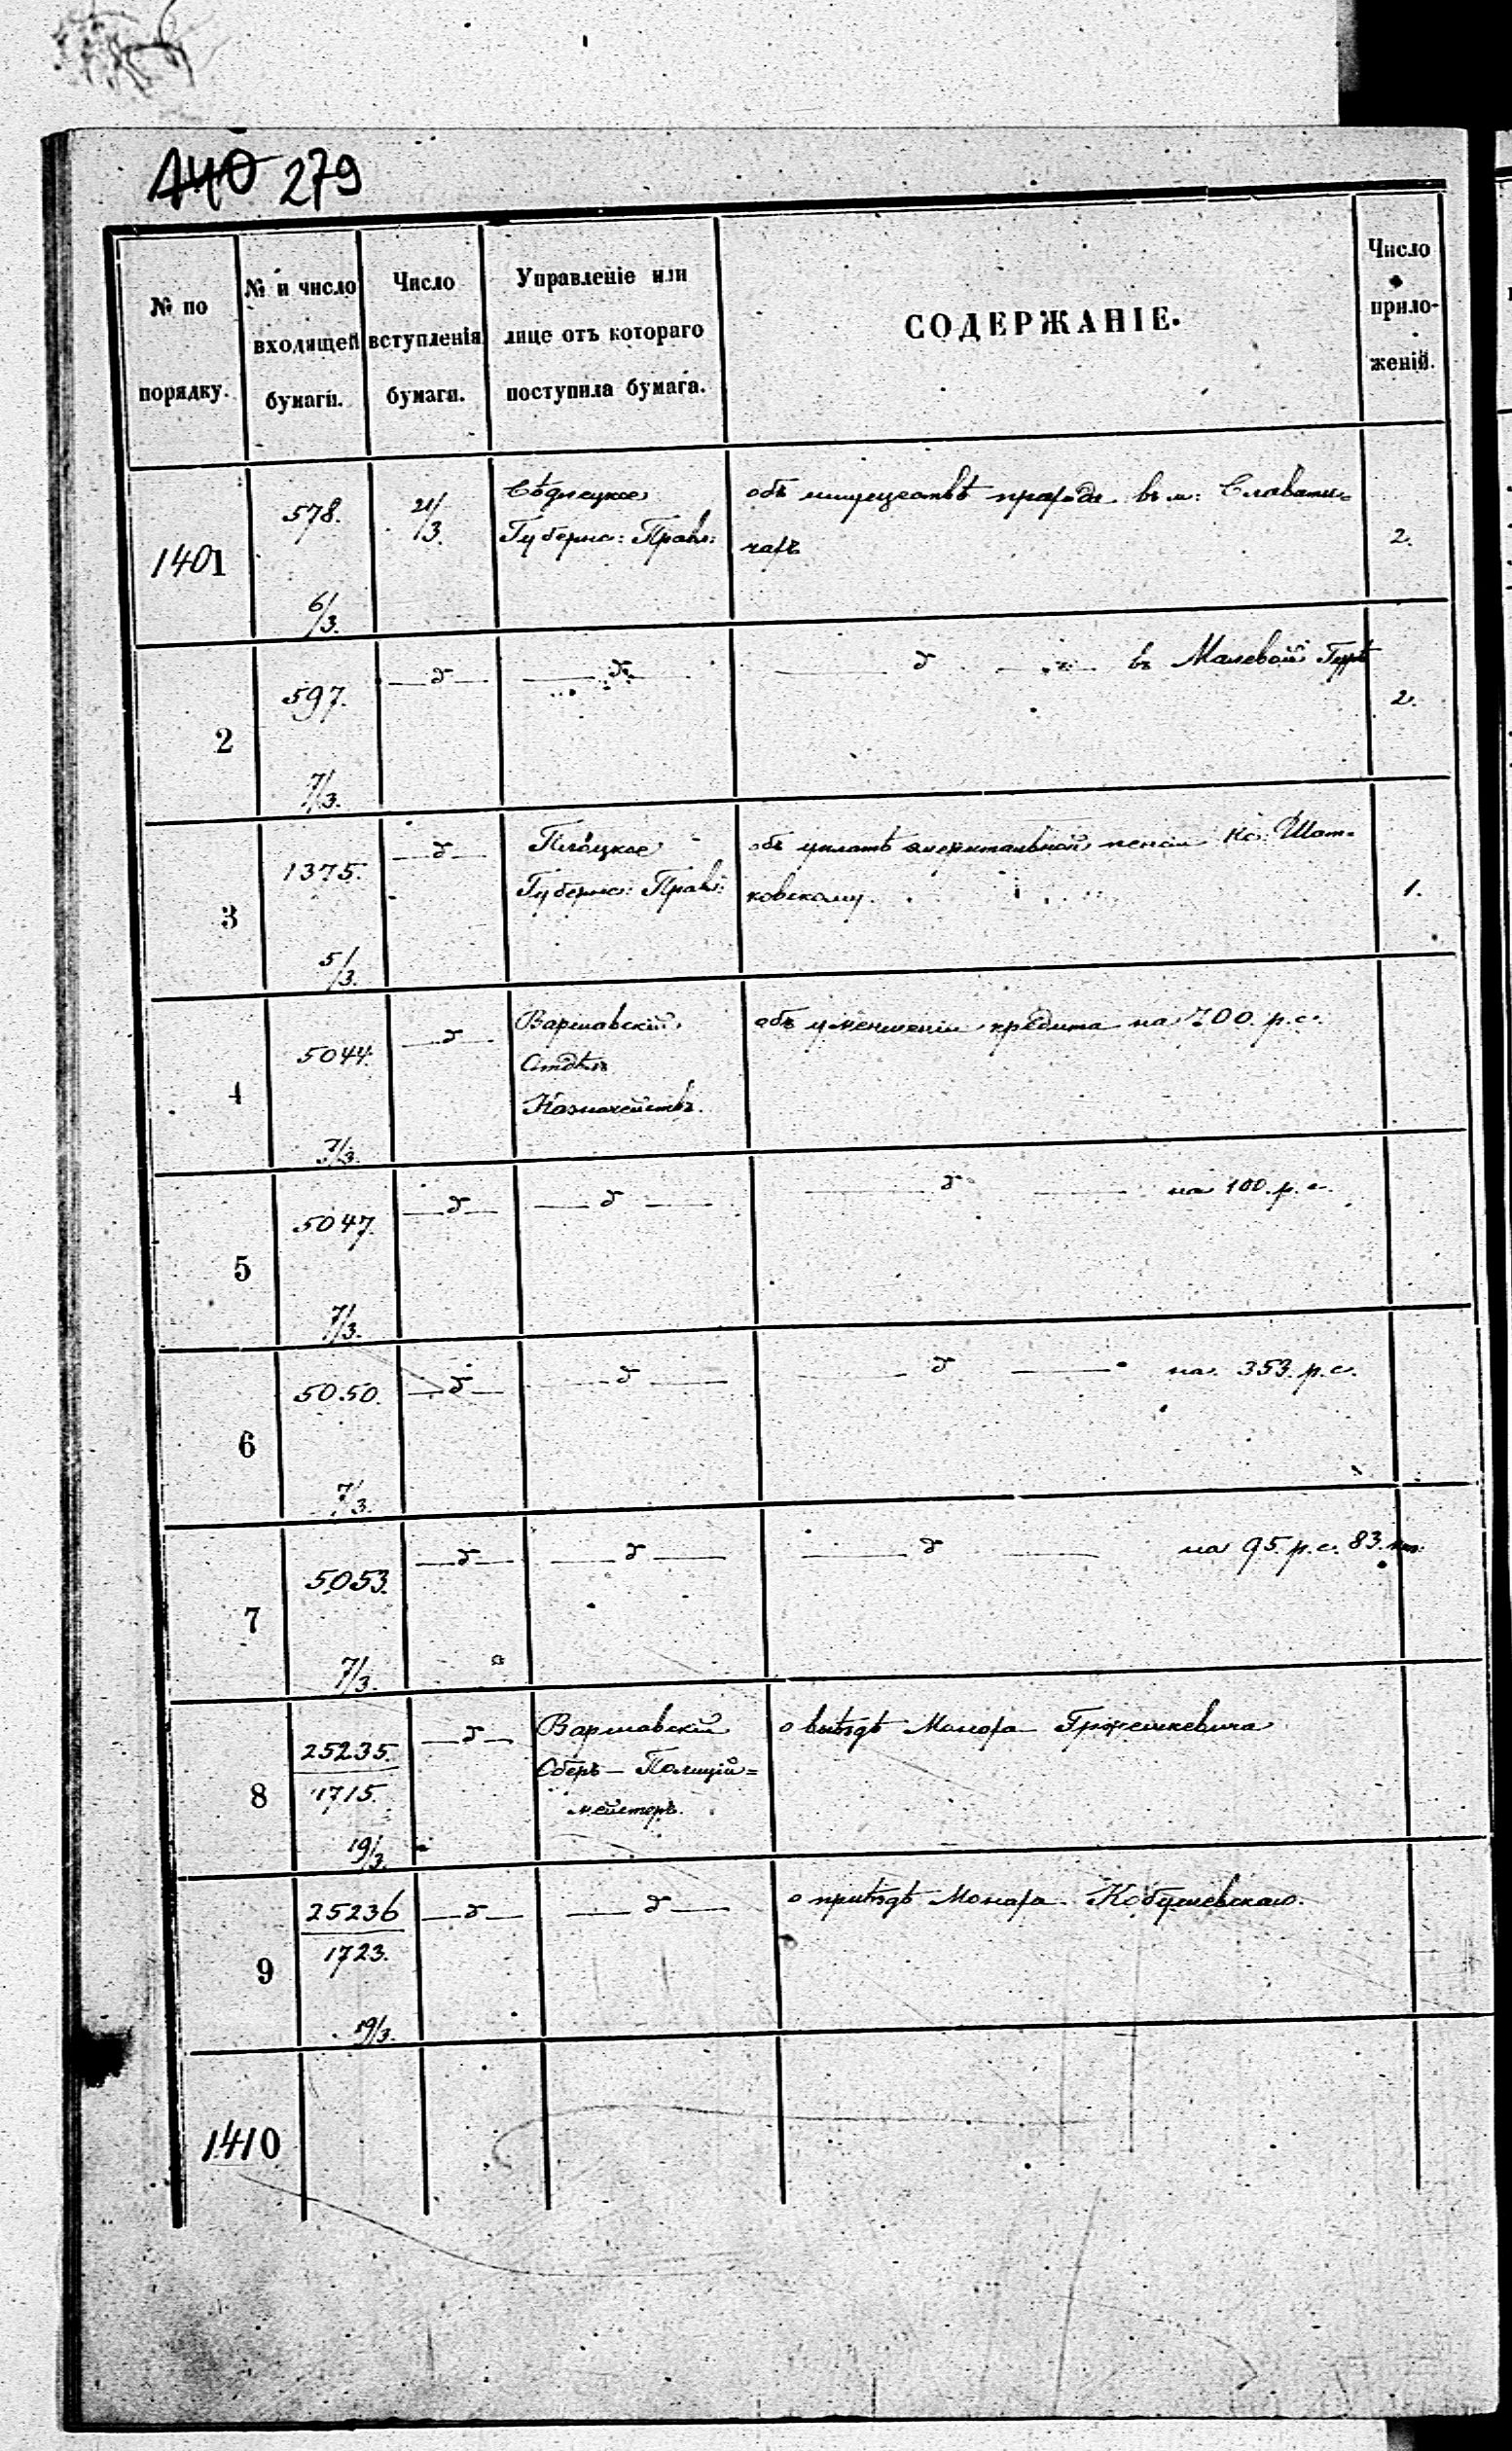 140 279
№ по порядку.
№ и число входящей бумаги.
Число вступленія бумаги.
Управленіе или лице отъ котораго поступила бумага.
СОДЕРЖАНІЕ.
Число приложеній.
1401
578.
6/3.
21/3.
Сѣдлецкое
Губернс: Правл:
объ имуществѣ въ м: Славати=
чахъ
2.
2
597.
7/3.
—д—
—д—
—д— въ Малевой Гурѣ
2.
3
1375.
5/3.
—д—
Плоцкое
Губернс: Правл:
объ уплатѣ эмеритальной пенсіи Кс: Шат-
ковскому.
1.
4
5044.
7/3.
—д—
Варшавскій
Отдѣлъ
Казначействъ.
объ уменшеніи кредита на 700. р.с.
5
5047.
7/3.
—д—
—д—
—д— на 100. р. с.
6
5050.
7/3.
—д—
—д—
—д— на 353. р. с.
7
5053.
7/3.
—д—
—д—
—д— на 95. р. с. 83.
8
25235.
1715.
19/3.
—д—
Варшавскій
Оберъ-Полицій=
мейстеръ.
о выѣздѣ Монаха Гржешкевича
9
25236
1723.
19/3.
—д—
—д—
о пріѣздѣ Монаха Кобушевскаго.
1410